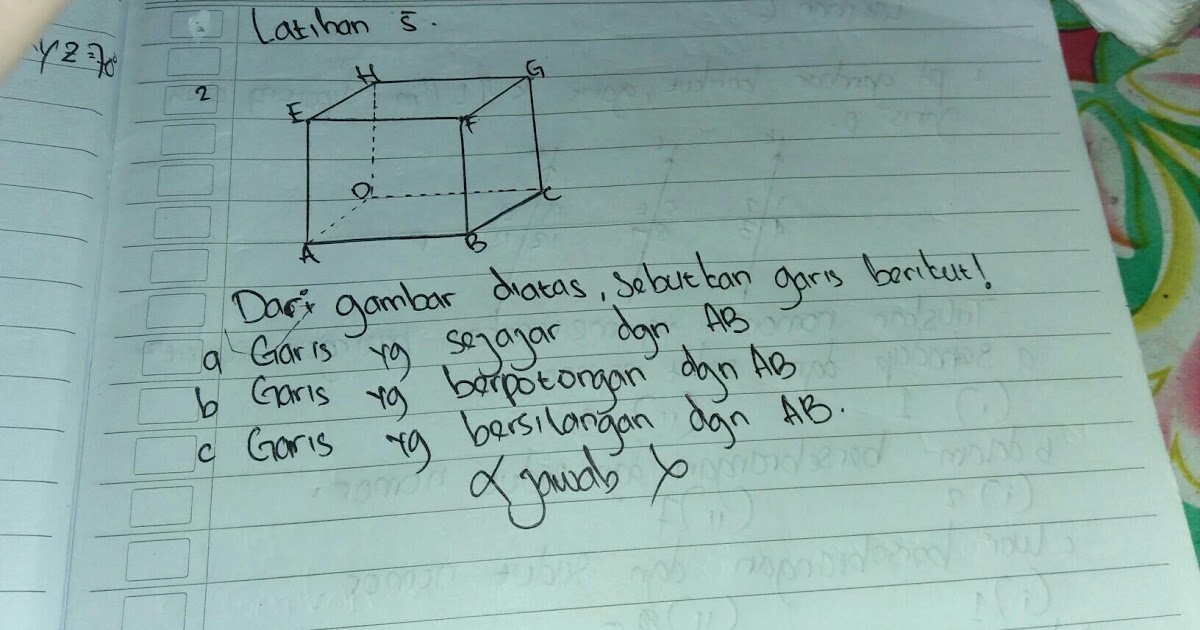 YZ=70°
Latihan 5.
2
H
G
E
F
D
C
A
B
Dari gambar diatas, sebutkan garis berikut!
a Garis yg sejajar dgn AB
b Garis yg berpotongan dgn AB
c Garis yg bersilangan dgn AB.
jawab